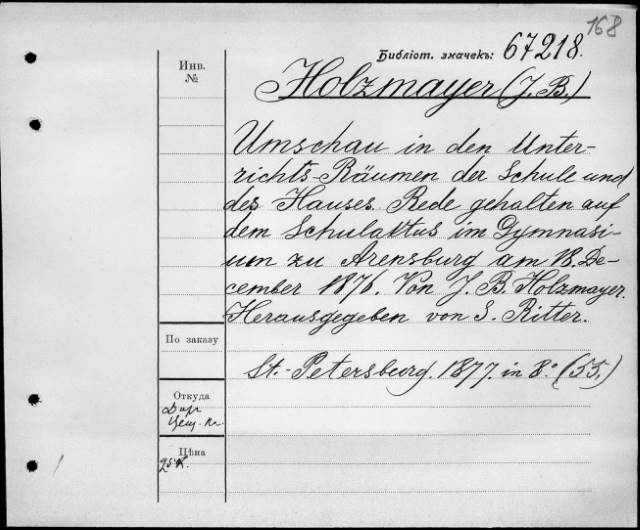 168
Библіот. значекъ: 67218.
Инв.
№
Holzmayer (J. B.)
Umschau in den Unter-
richts-Räumen der Schule und
des Hauses. Rede gehalten auf
dem Schulaktus im Gymnasi-
um zu Arensburg am 18. De-
cember 1876. Von J. B. Holzmayer.
Herausgegeben von S. Ritter.
По заказу
St.-Petersburg. 1877. in 8.° (55.)
Откуда
Дар
Цѣна
25 к.